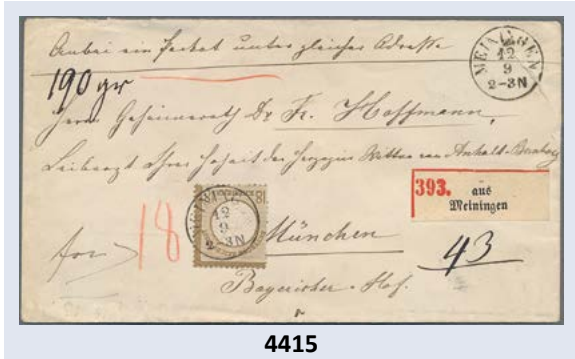 Anbei ein Packet unter gleicher Adresse
190 gr
MEININGEN
12
9
2-3N
Herrn Geheimerath Dr. Fr. Hoffmann,
Leibarzt Ihrer Hoheit der Herzogin Wittwe von Anhalt-Bernburg
393. aus
Meiningen
18
MEININGEN
12
9
2-3N
18
München
43
Bayerischer-Hof.
4415